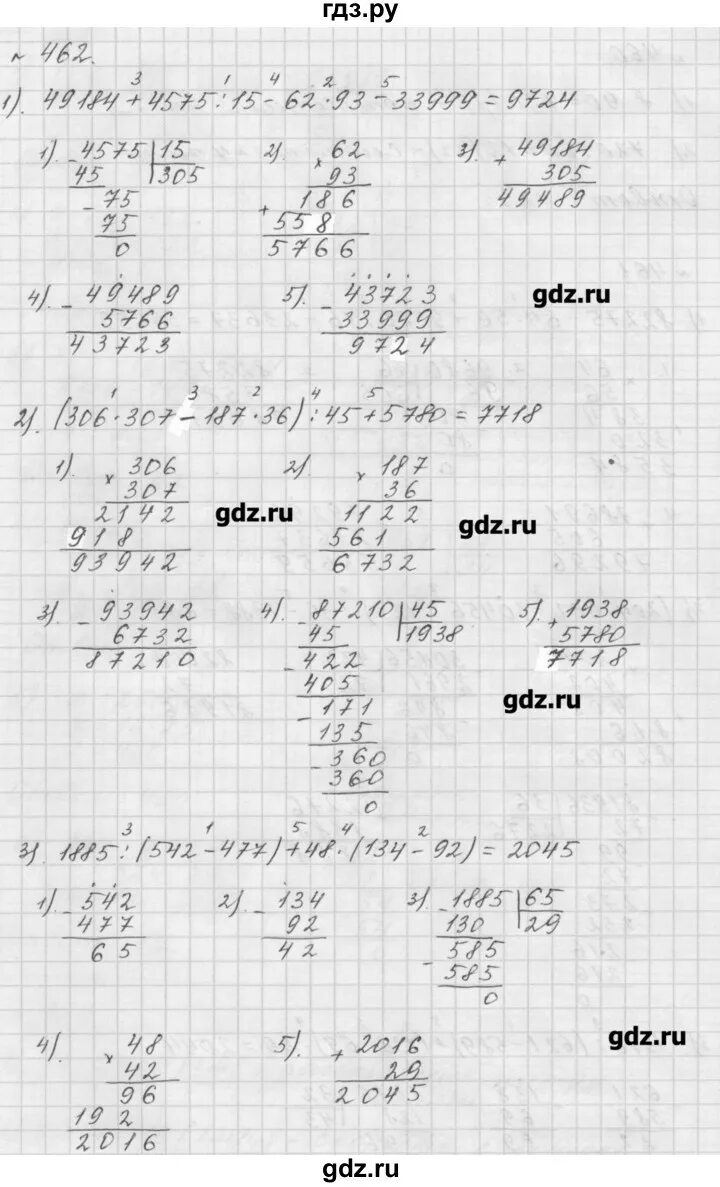 гдз.ру
№ 462.
1). 49184 + 4575 : 15 - 62 · 93 - 33999 = 9724
3 1 4 2 5
1). - 4575 | 15
45 305
- 75
75
0
2) × 62
93
+ 186
558
5766
3). + 49184
305
49489
4). - 49489
5766
43723
5). - 43723
33999
9724
gdz.ru
2). (306 · 307 - 187 · 36) : 45 + 5780 = 7718
1 3 2 4 5
1). × 306
307
2142
918
93942
2) × 187
36
1122
561
6732
gdz.ru
gdz.ru
3) - 93942
6732
87210
4). - 87210 | 45
45 1938
- 422
405
- 171
135
- 360
360
0
5). + 1938
5780
7718
gdz.ru
3). 1885 : (542 - 477) + 48 · (134 - 92) = 2045
3 1 5 4 2
1). - 542
477
65
2). - 134
92
42
3). - 1885 | 65
130 29
- 585
585
0
gdz.ru
4). × 48
42
96
192
2016
5). + 2016
29
2045
gdz.ru